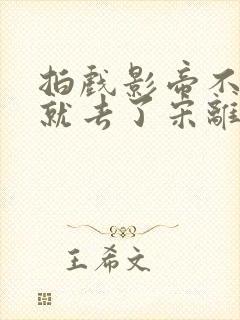 拍戲影帝不
就去了宋離
王希文